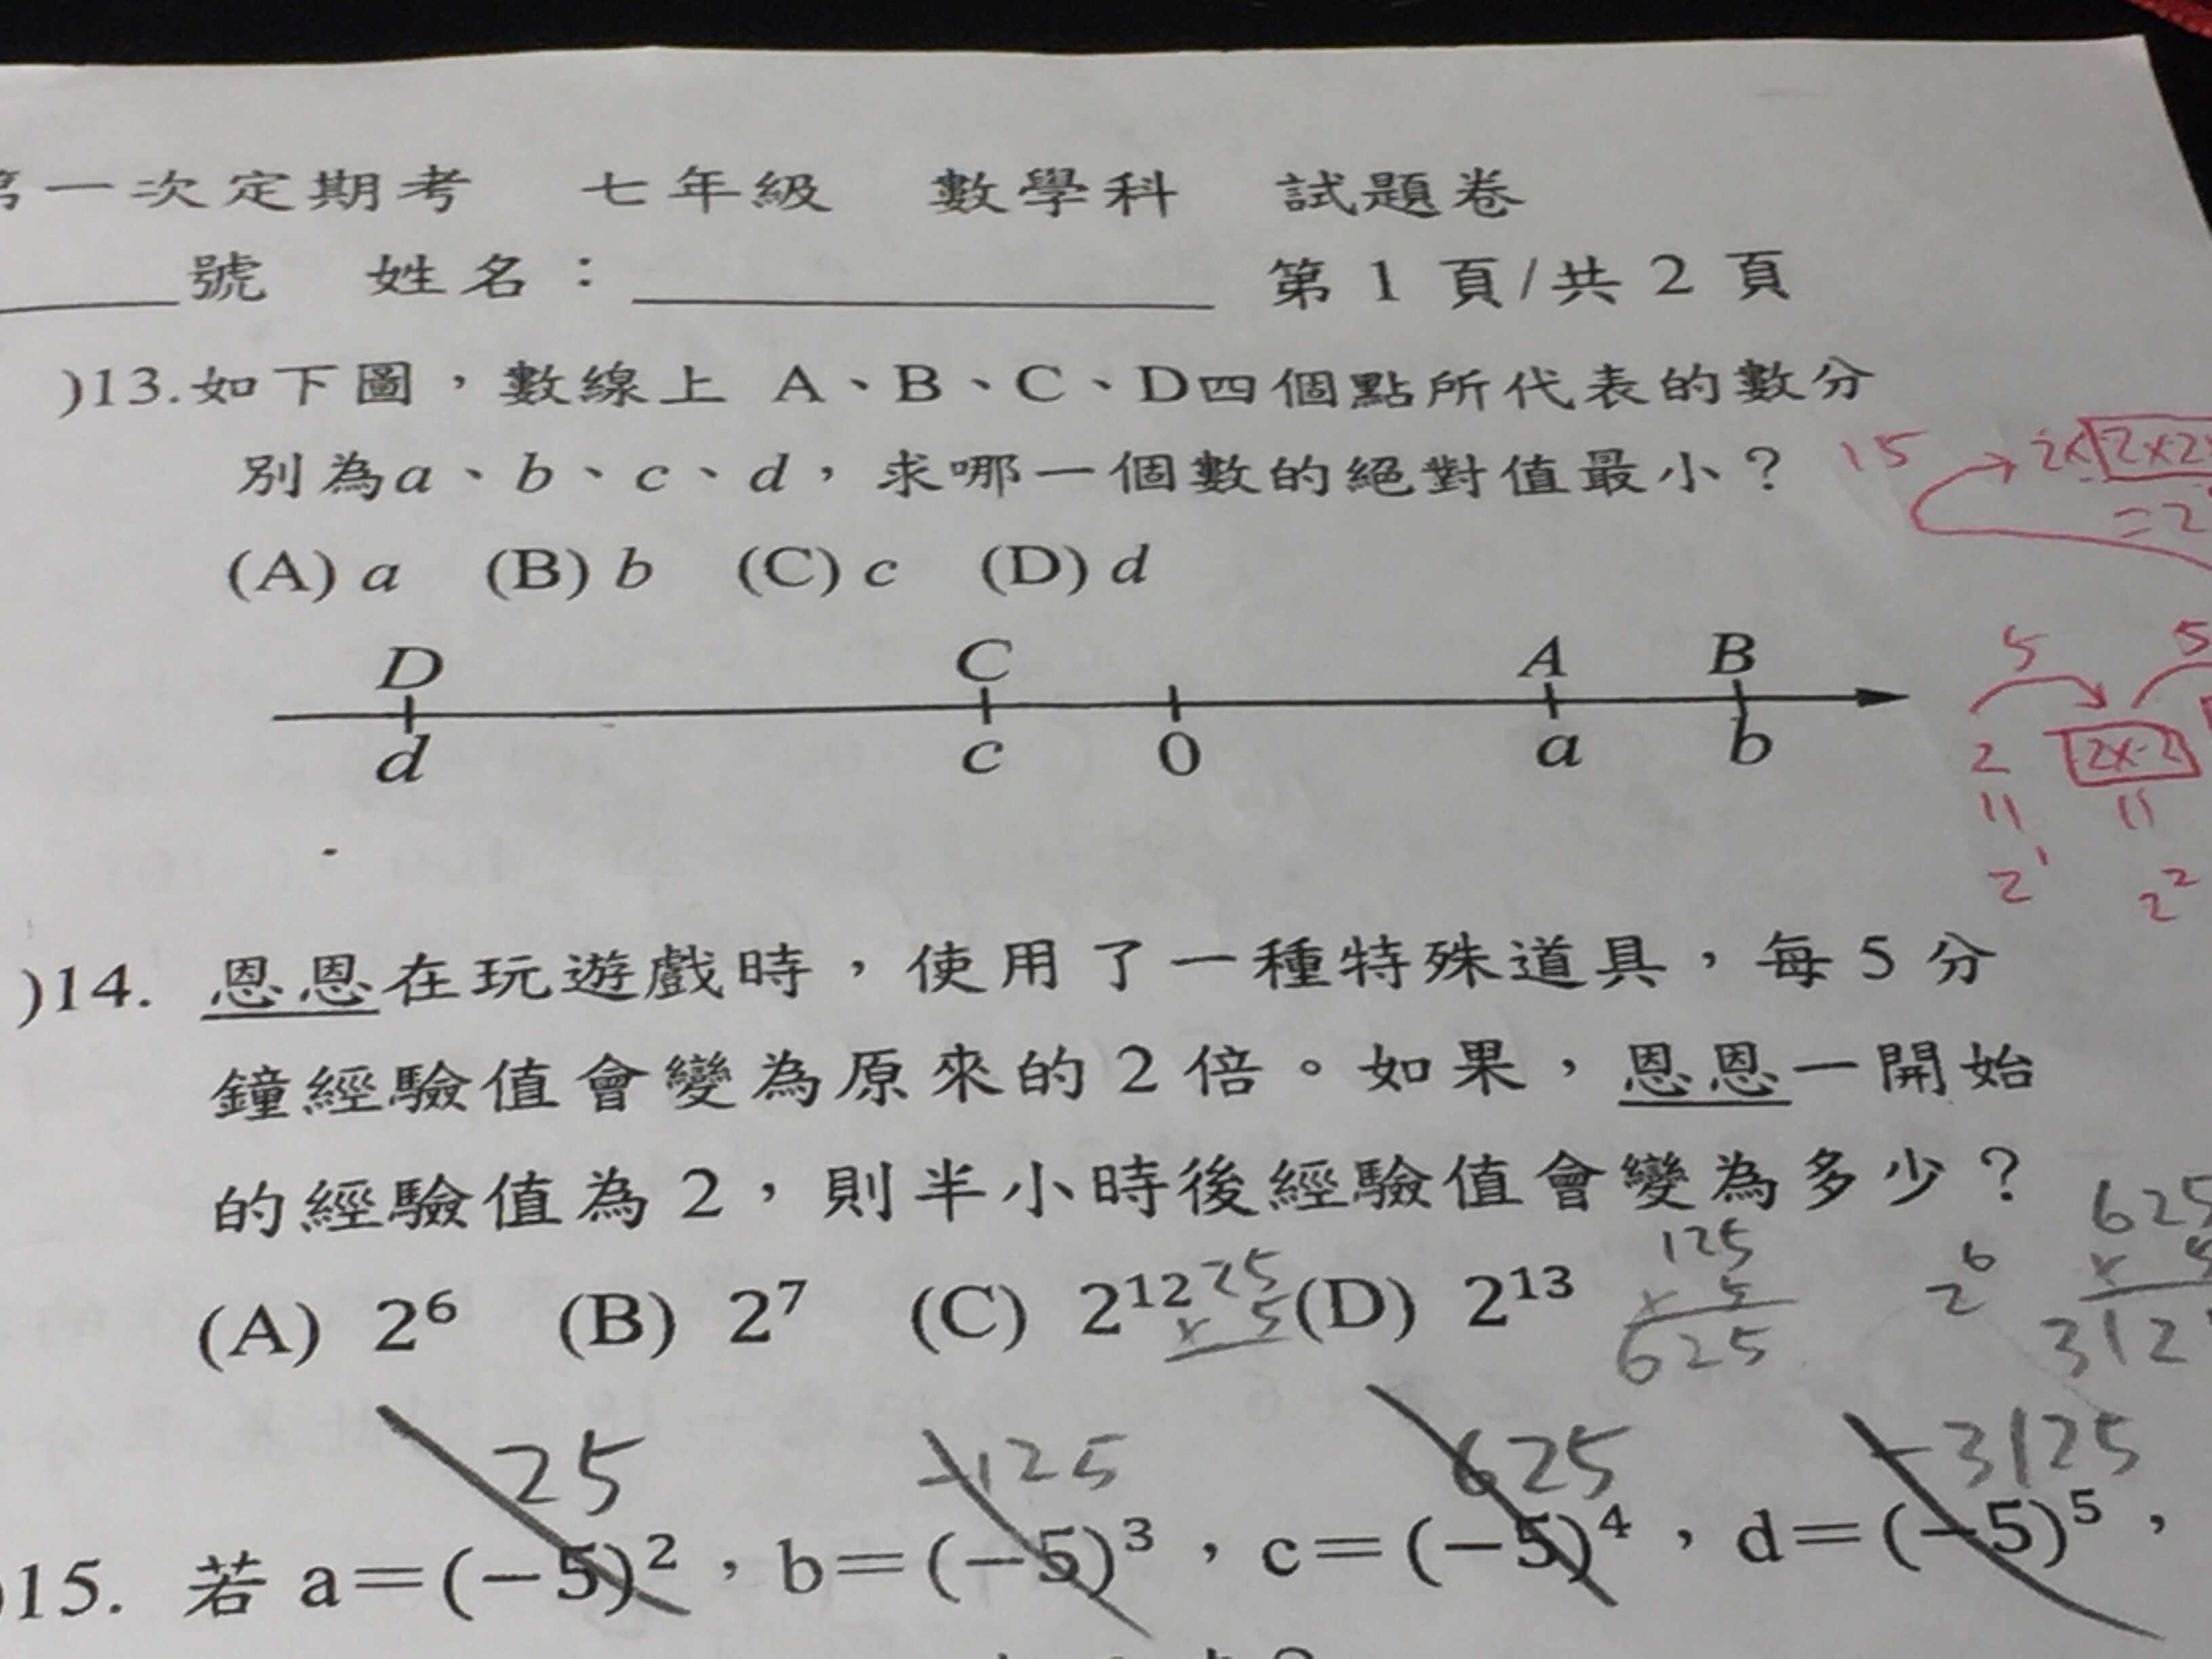 第一次定期考 七年級 數學科 試題卷
號 姓名： 第 1 頁/共 2 頁
)13.如下圖，數線上 A、B、C、D四個點所代表的數分
別為a、b、c、d，求哪一個數的絕對值最小？
(A) a (B) b (C) c (D) d
D C A B
d c 0 a b
15 2×2×2
=2
5 5
2 2×2
11 11
2¹ 2²
)14. 恩恩在玩遊戲時，使用了一種特殊道具，每 5 分
鐘經驗值會變為原來的 2 倍。如果，恩恩一開始
的經驗值為 2，則半小時後經驗值會變為多少？
(A) 2⁶ (B) 2⁷ (C) 2¹² (D) 2¹³
25
× 5
125
× 5
625
2⁶
625
×
312
25 -125 625 -3125
)15. 若 a=(−5)²，b=(−5)³，c=(−5)⁴，d=(−5)⁵，